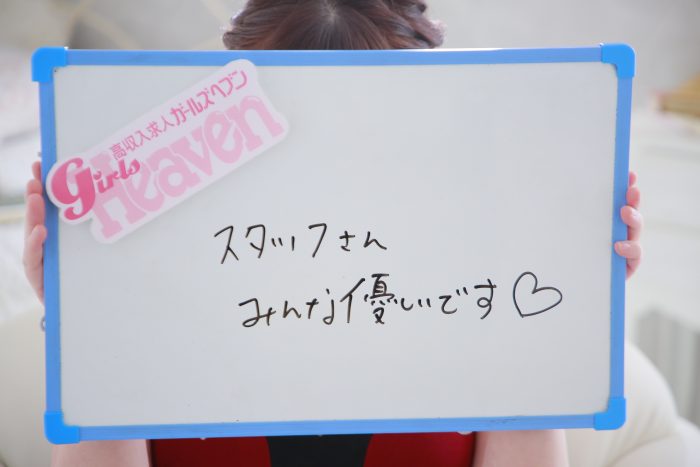 高収入求人ガールズヘブン
Girls
Heaven
スタッフさん
みんな優しいです♡